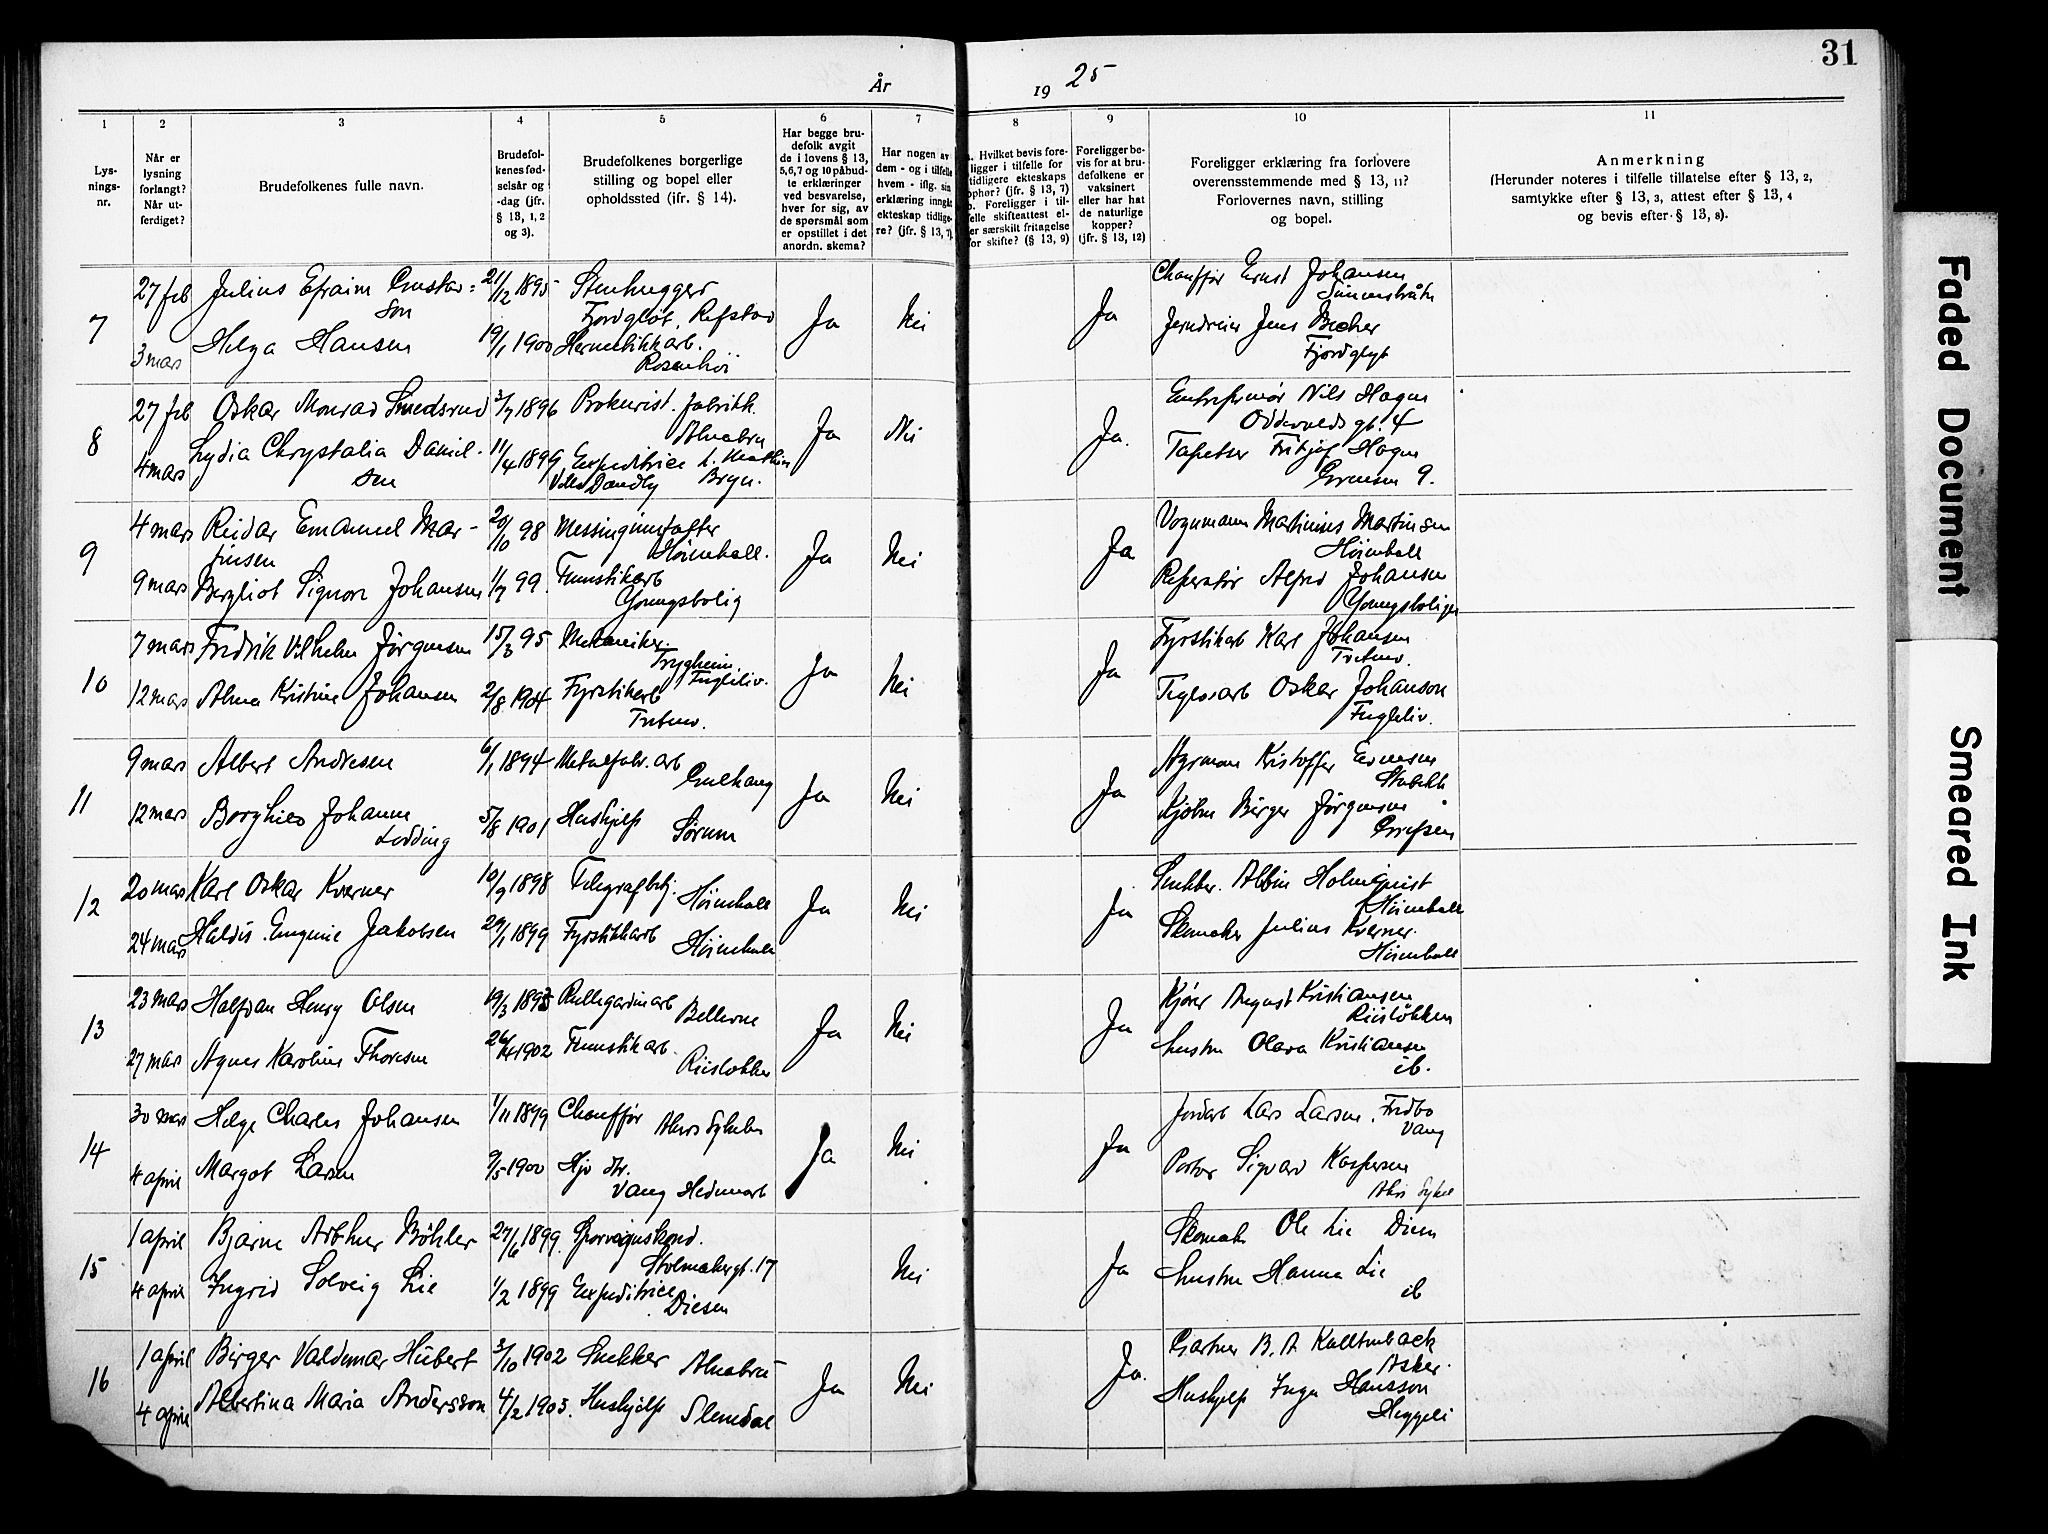 31
År 1925
1 2 3 4 5 6 7 8 9 10 11
Lys-
nings-
nr.
Når er
lysning
forlangt?
Når ut-
ferdiget?
Brudefolkenes fulle navn.
Brudefol-
kenes fød-
selsår og
-dag (jfr.
§ 13, 1, 2
og 3).
Brudefolkenes borgerlige
stilling og bopel eller
opholdssted (jfr. § 14).
Har begge bru-
defolk avgit
de i lovens § 13,
5, 6, 7 og 10 påbud-
te erklæringer
ved besvarelse,
hver for sig, av
de spørsmål som
er opstillet i det
anordn. skema?
Har nogen av
dem - og i tilfelle
hvem - iflg. sin
erklæring inngåt
ekteskap tidlige-
re? (jfr. § 13, 7).
Hvilket bevis fore-
ligger i tilfelle for
tidligere ekteskaps
ophør? (jfr. § 13, 7)
Foreligger i til-
felle skifteattest el-
ler særskilt fritagelse
for skifte? (§ 13, 9)
Foreligger be-
vis for at bru-
defolkene er
vaksinert
eller har hat
de naturlige
kopper?
(jfr. § 13, 12)
Foreligger erklæring fra forlovere
overensstemmende med § 13, 11?
Forlovernes navn, stilling
og bopel.
Anmerkning
(Herunder noteres i tilfelle tillatelse efter § 13, 2,
samtykke efter § 13, 3, attest efter § 13, 4
og bevis efter § 13, 8).
7 27 feb Julius Efraim Gustav=
son 21/12 1895 Stenhugger
Fjordgløt, Refstad Ja Nei Ja Chauffør Ernst Johansen
3 mars Helga Hansen 19/1 1900 Hermetikkarb.
Rosenhoi Jens
8 27 feb Oskar Monrad Smedsrud 3/7 1896 Prokurist. fabrikk.
Alnabru Ja Nei Ja. Entreprenør Nils Hagen
Oddervolds gt. 4
4 mars Lydia Chrystalia Daniel-
sen 11/4 1899 Expeditrice
Villa Bryn. Tapetser Fritjof Hagen
Grensen 9.
9 4 mars Reidar Emanuel Mar-
tinsen 20/10 98 Ja Nei Ja Vognmann Martinius Martinsen
Høienhall
9 mars Bergliot Signora Johansen 1/7 99. Fyrstikarb
Youngsbolig Reperatør Alfred Johansen
10 7 mars Fredrik Vilhelm Jørgensen 15/3 95 Mekaniker
Trygheim
Fugleliv. Ja Nei Ja Fyrstikarb Karl Johansen
12 mars Alma Kristine Johansen 2/8 1904 Fyrstikarb Teglv.arb Oskar Johanson
Fugleliv.
11 9 mars Albert Andresen 6/1 1894 Metalfabr. arb
Gulhaug Ja Nei Ja Kristoffer Evensen
Stabekk
12 mars Borghild Johanne
Lodding 5/8 1901 Hushjelp
Sørum Birger Jørgensen
Grefsen
12 20 mars Karl Oskar Kverner 10/9 1898 Telegrafbtj.
Høienhall Ja Nei Ja Snekker. Albin Holmquist
Høienhall
24 mars Haldis Eugenie Jakobsen 29/1 1899 Fyrstikkarb
Høienhall Skomaker Julius Kverner.
Høienhall
13 23 mars Halfdan Henry Olsen Rullegardinarb
Bellevue Ja Nei Ja Kjører August Kristiansen
Riisløkken
27 mars Agnes Karoline Thoresen 1902 Fyrstikarb.
Riisløkken hustru Olava Kristiansen
ib.
14 30 mars Helge Charles Johansen 1/11 1899 Chauffør Ja Nei Ja Jordarb Lars Larsen. Fredbo
Vang
4 april Margot Larsen 9/5 1900
Vang Hedmark Portør Sigvard Kaspersen
15 1 april Bjarne Arthur Böhler 27/6 1899. Sporveiguskond.
Stolmakergt. 17 Nei Ja Skomak Ole Lie Diesen
4 april Ingrid Solveig Lie 1/2 1899 Expeditrice
Diesen hustru Hanna Lie
ib
16 1 april Birger Valdemar Hübert 3/10 1902 Snekker Alnabru Ja Nei Ja. Gartner B. A Kaltenback
Asker.
4 april Albertina Maria Andersson 4/2 1903. Hushjelp
Slemdal Hushjelp Inga Hansson
Heggeli
Faded Document
Smeared Ink